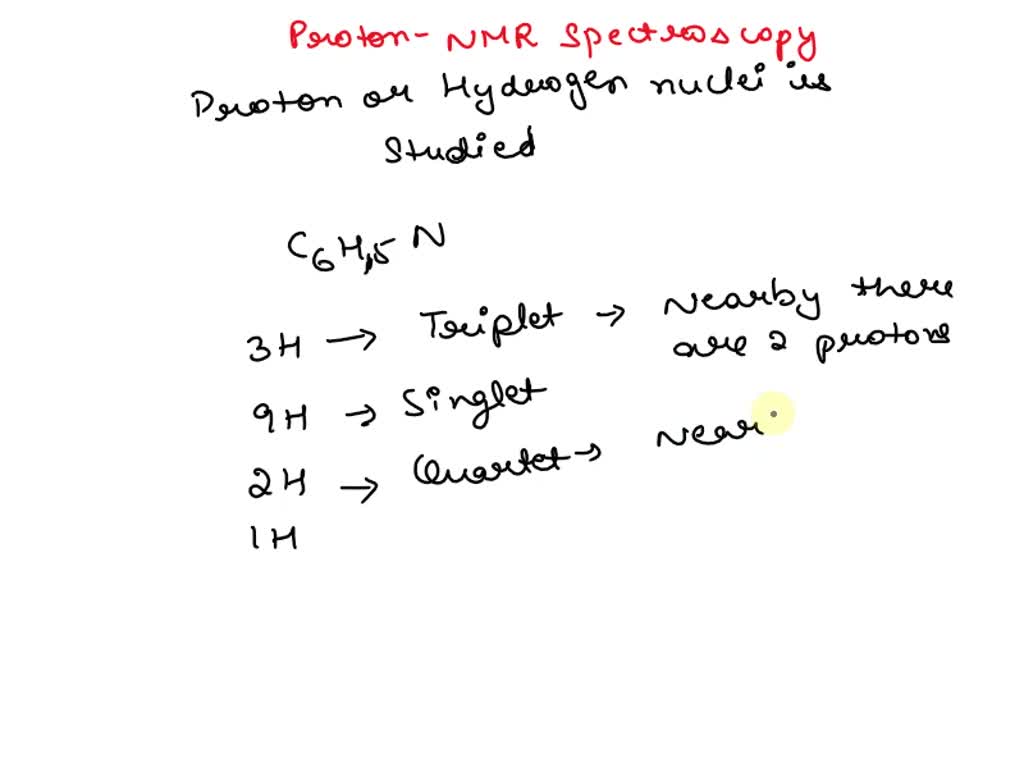 Proton- NMR Spectroscopy
Proton or Hydrogen nuclei is
Studied
C6H15 N
3H → Triplet → Nearby there
are 2 protons
9H → Singlet
2H → Quartet → Near
1H